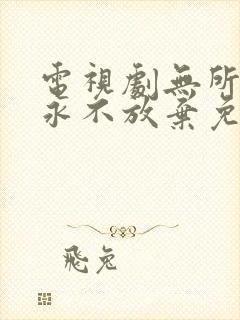 電視劇無所
永不放棄免
飛兔